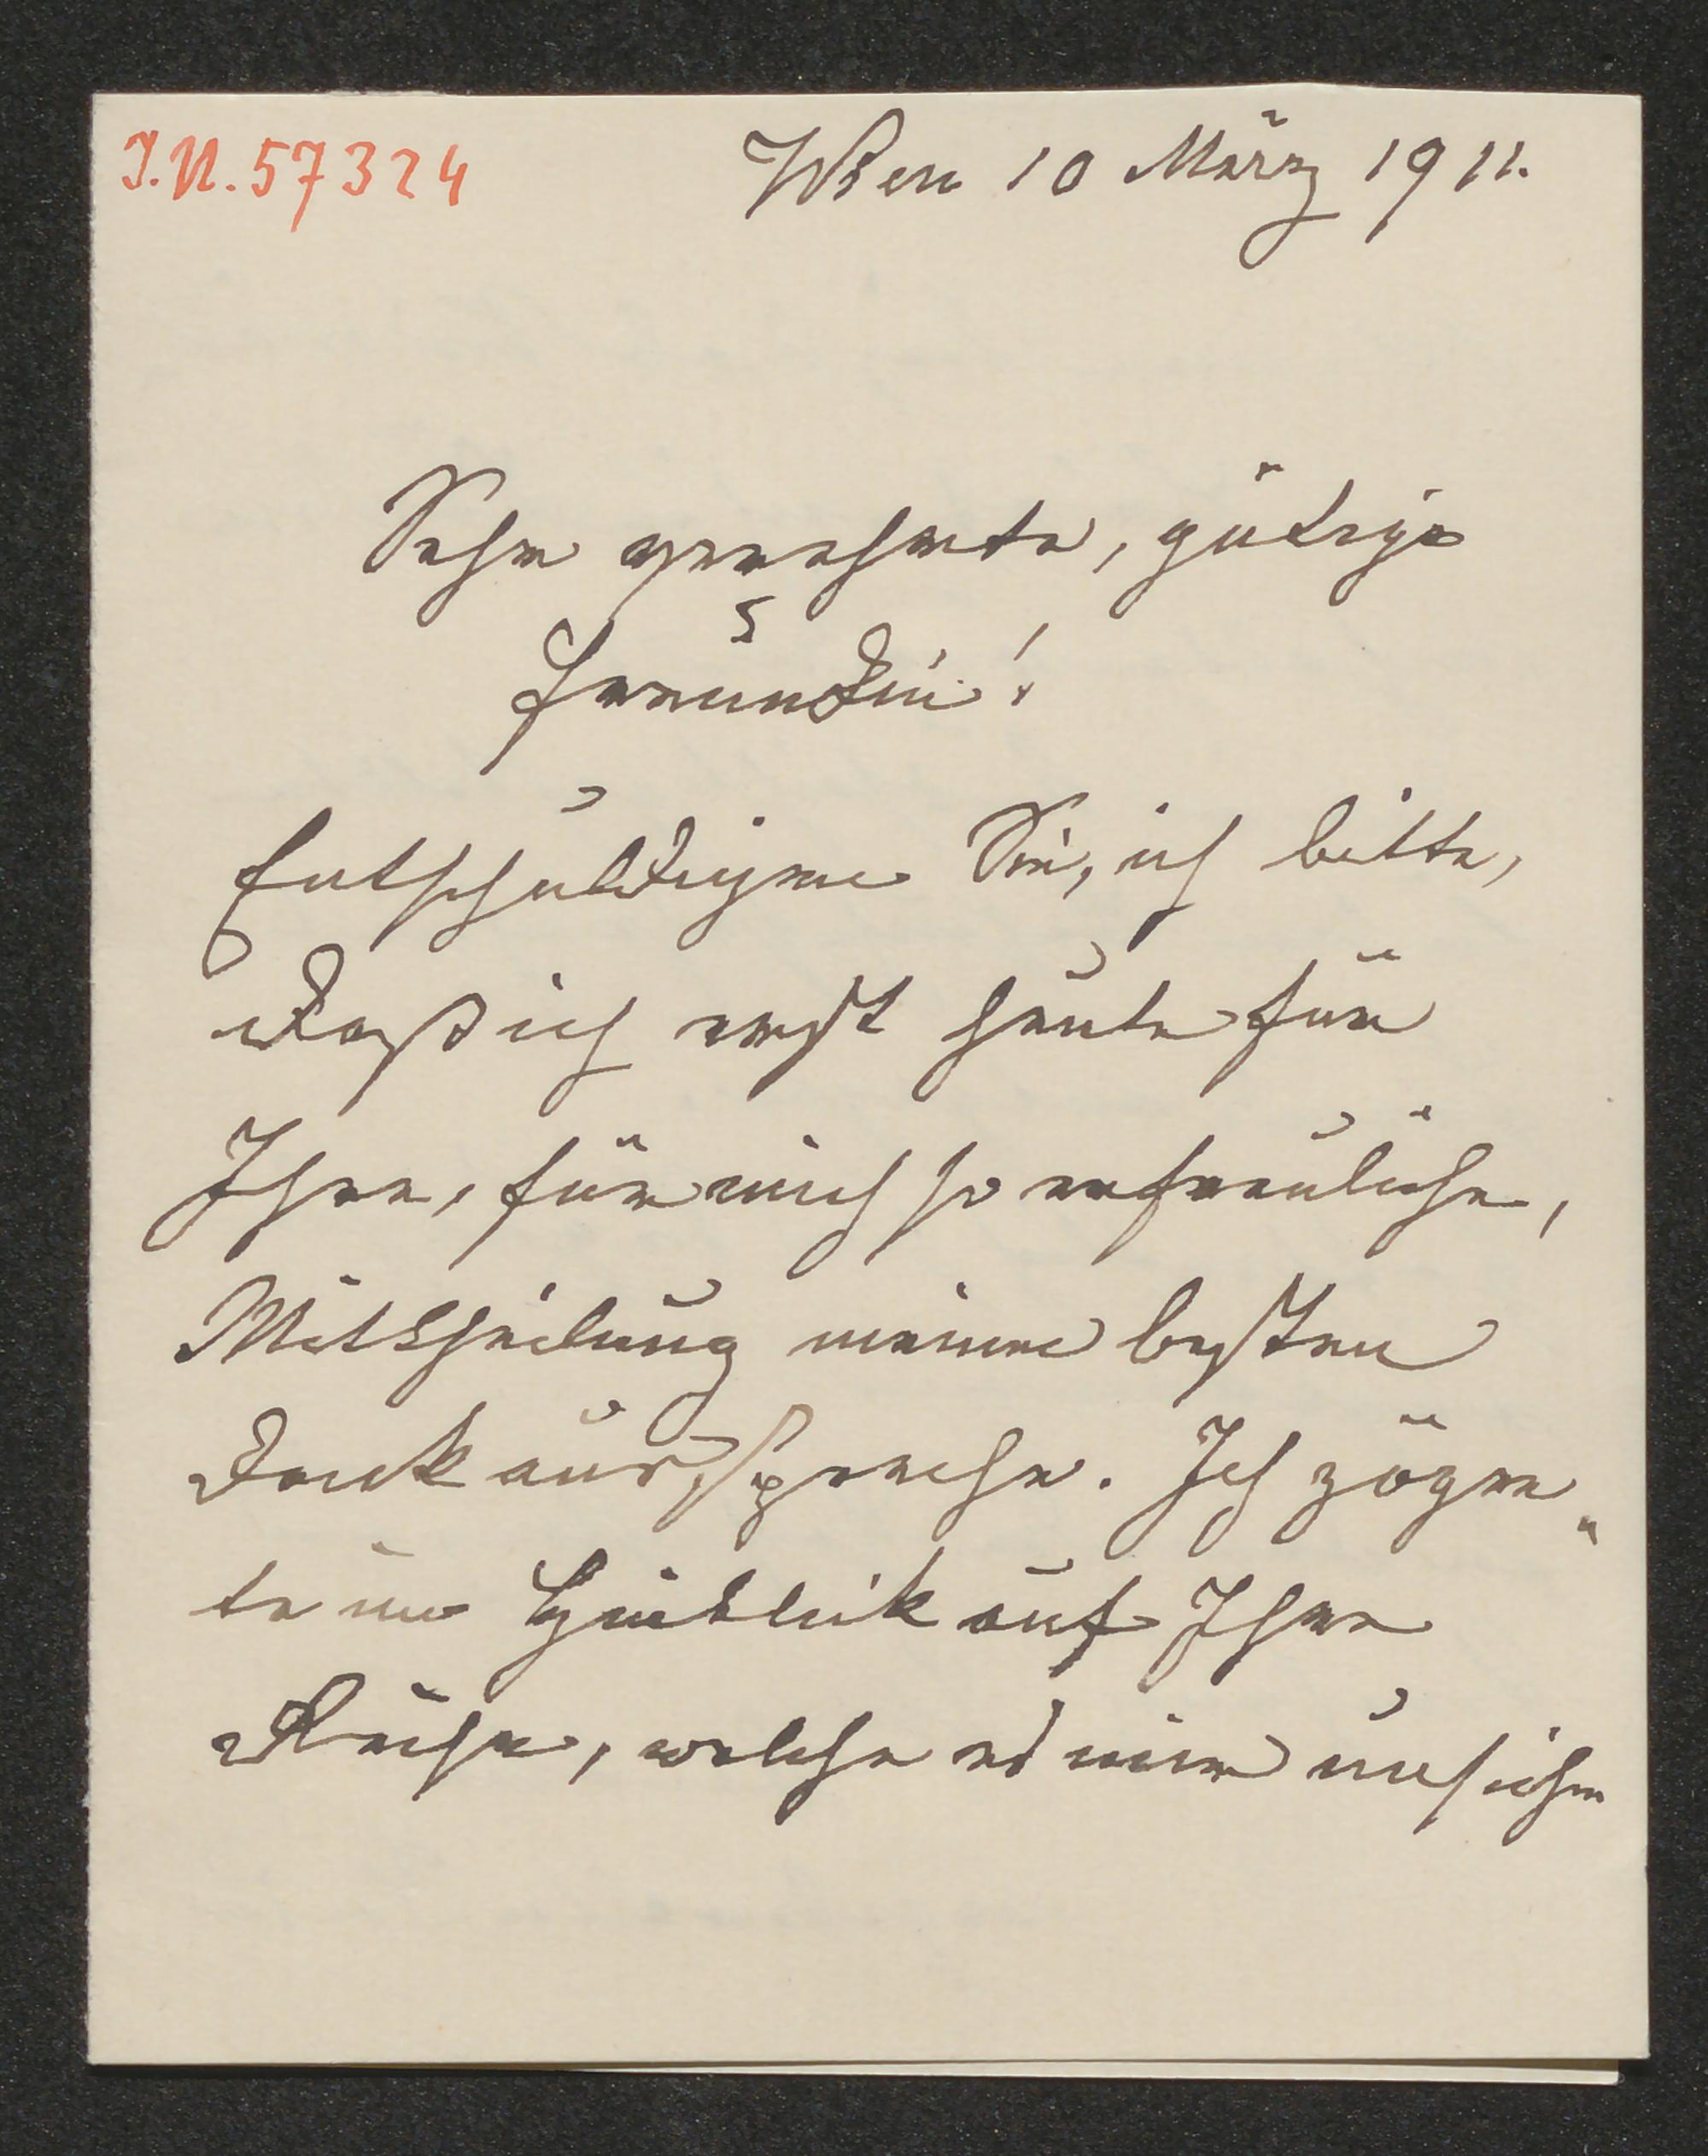 I.N. 57324
Wien 10 März 1911.
Sehr geehrte, gütige
Freundin!
Entschuldigen Sie, ich bitte,
daß ich erst heute für
Ihre, für mich so erfreuliche,
Mittheilung meinen besten
Dank ausspreche. Ich zöger„
te im Hinblick auf Ihre
Reise, welche es mir unsicher